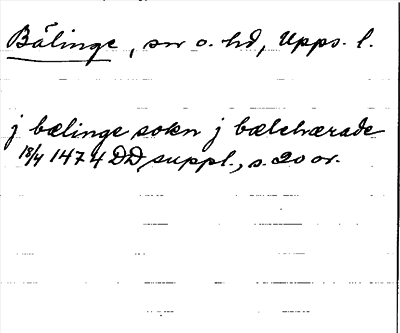 Bälinge, sn o. hd, Upps. l.
j bælinge sokn j bælehærade
18/4 1474 DD suppl., s. 20 or.